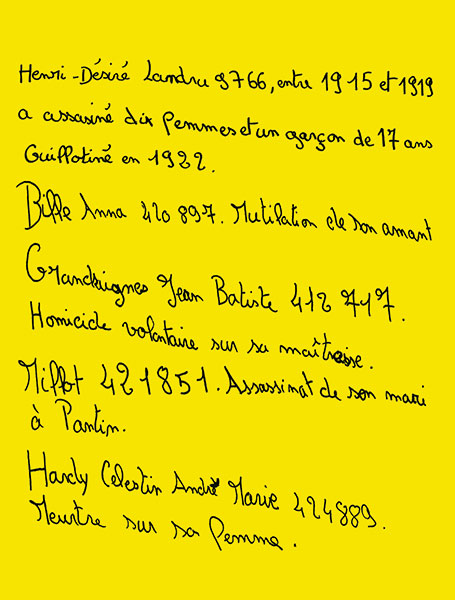 Henri-Désiré Landru 9766, entre 1915 et 1919
a assasiné dix femmes et un garçon de 17 ans
Guillotiné en 1922.
Biffe Anna 420 897. Mutilation de son amant
Jean Batiste 412 717.
Homicide volontaire sur sa maîtresse.
421851. Assassinat de son mari
à Pantin.
Hardy Celestin André Marie 424889.
Meurtre sur sa femme.